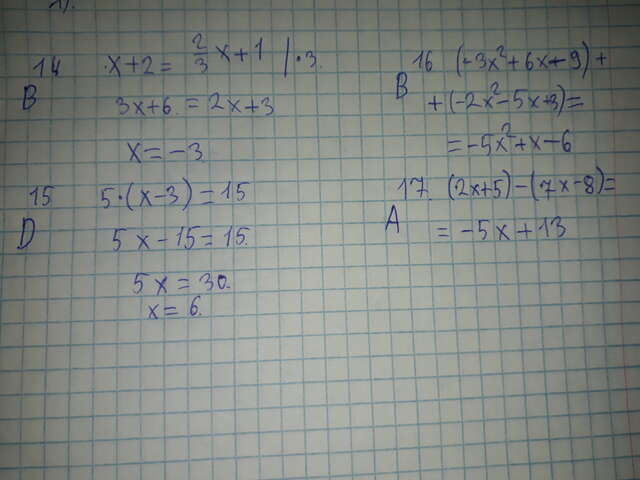 14 x+2= 2/3 x+1 |·3.
B 3x+6.=2x+3
x=-3.
15 5·(x-3)=15
D 5x-15=15.
5x=30.
x=6.
16 (-3x²+6x-9)+
B +(-2x²-5x+3)=
=-5x²+x-6
17. (2x+5)-(7x-8)=
A =-5x+13